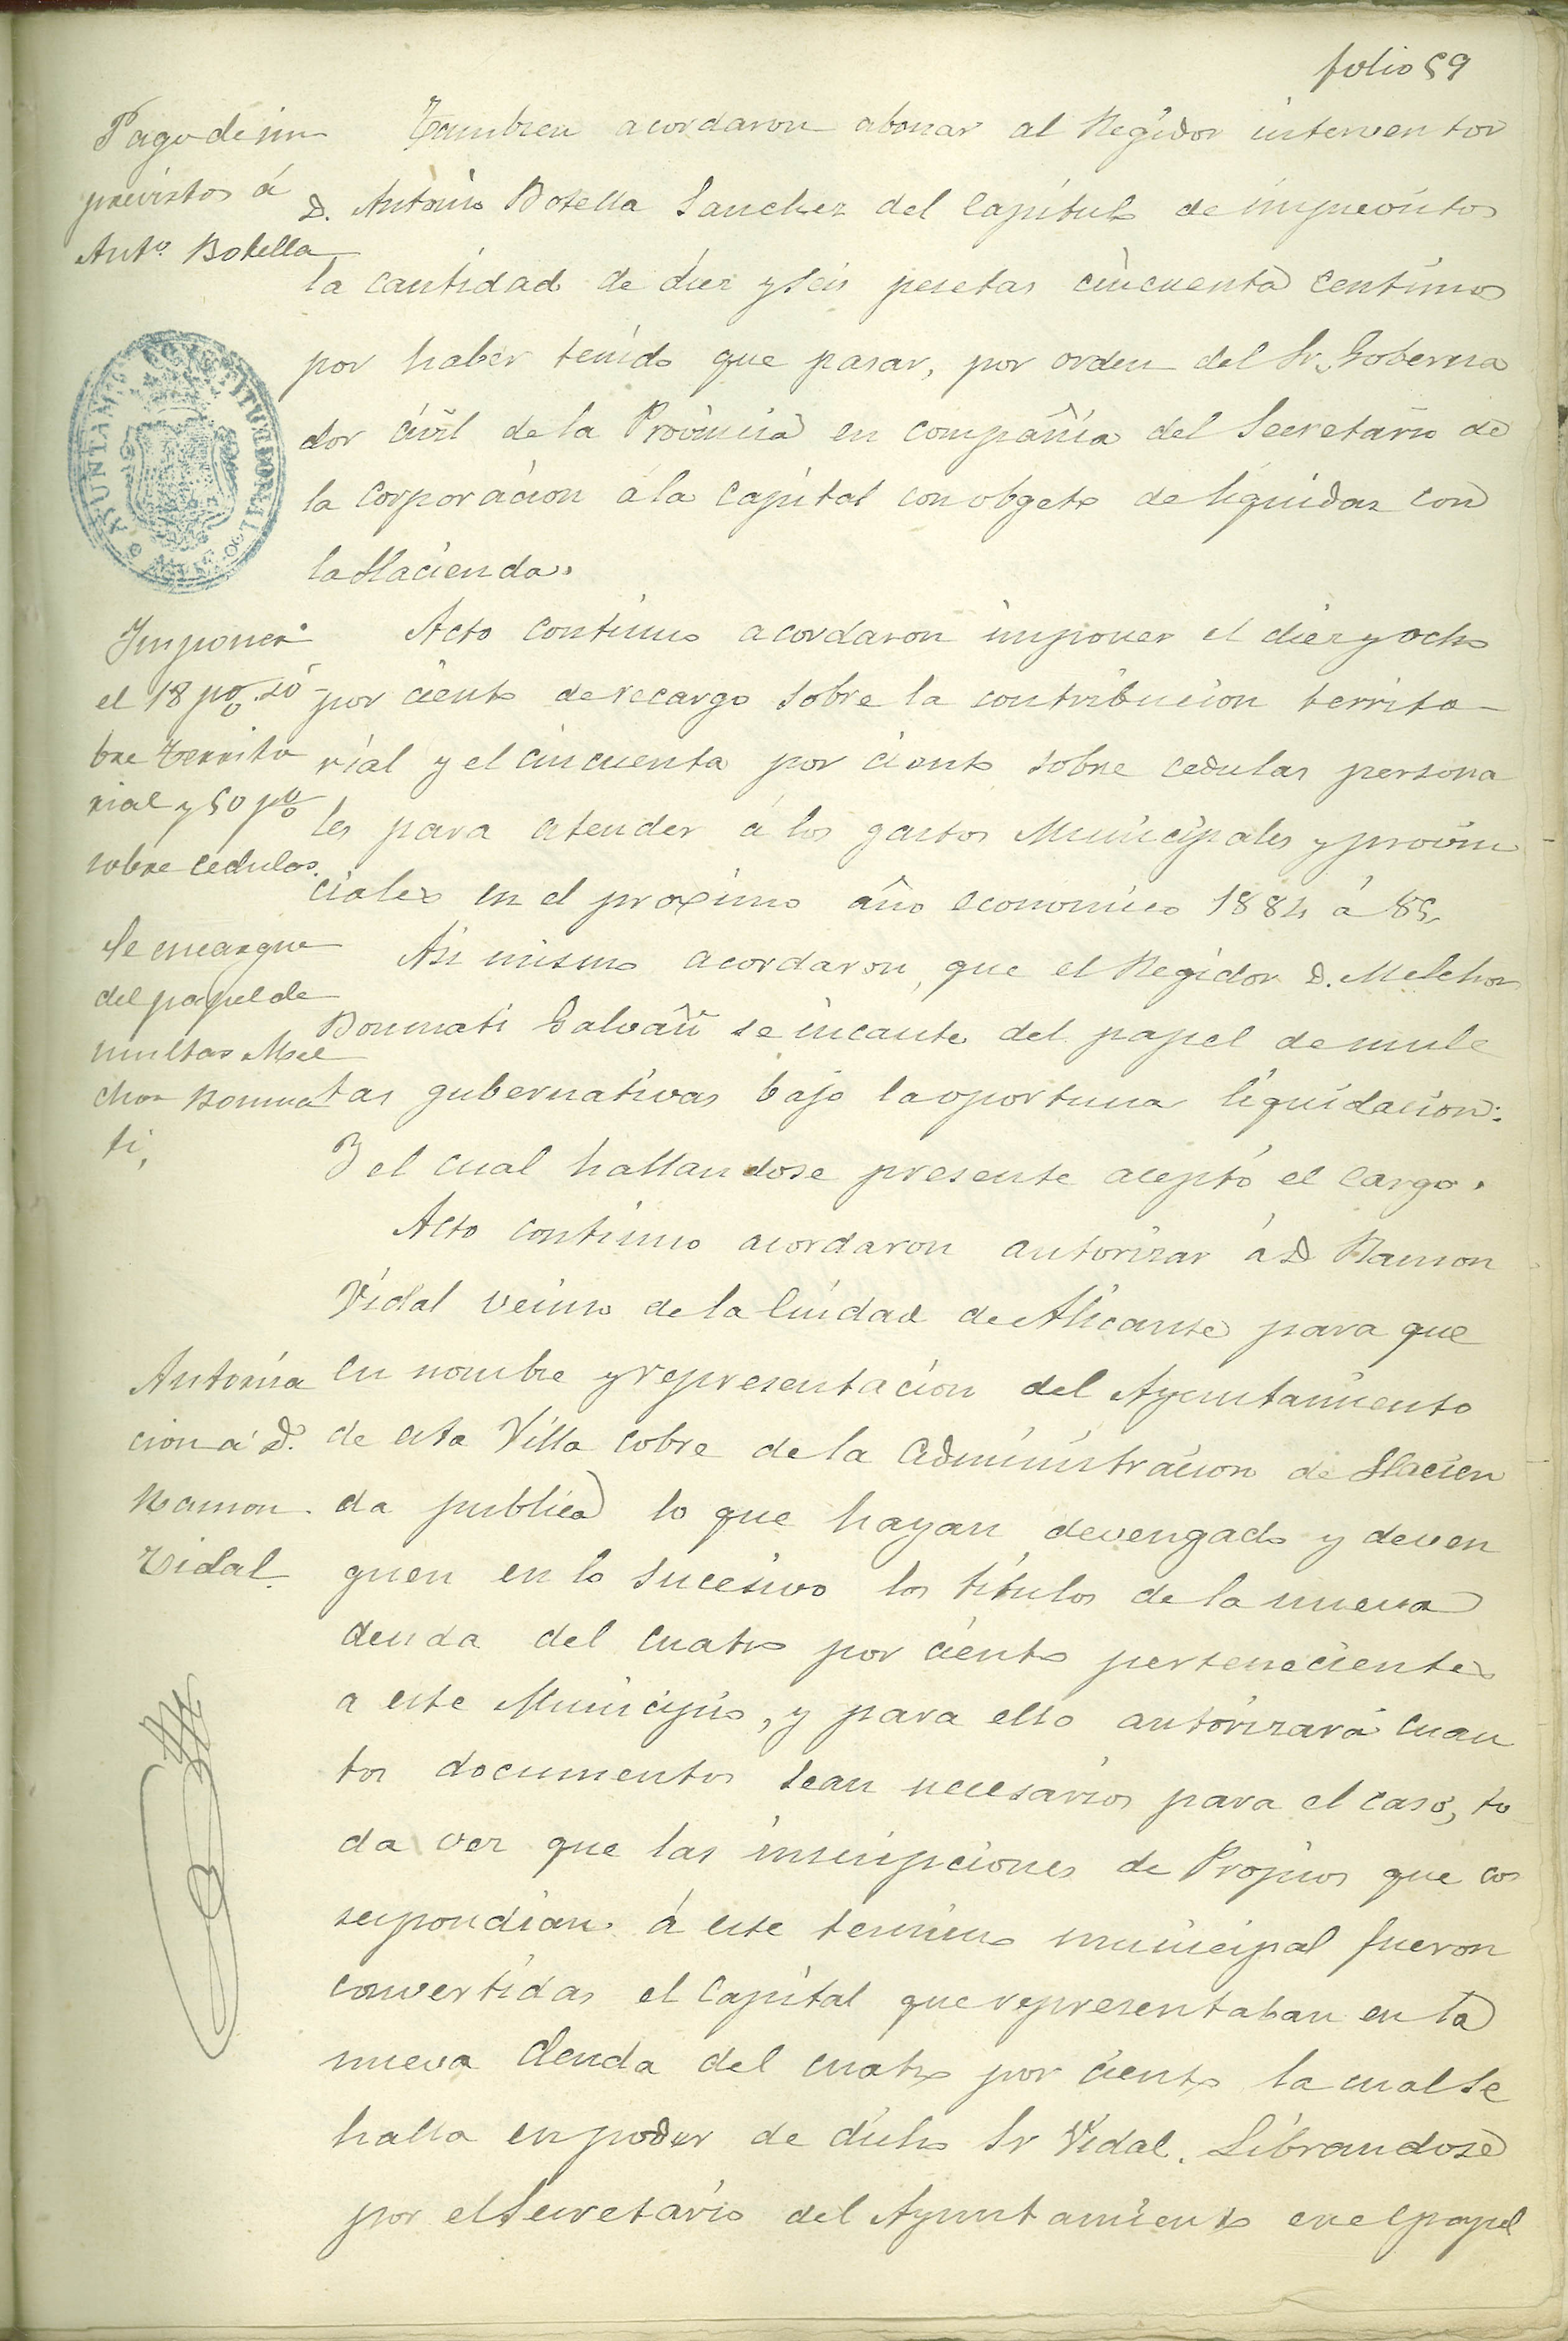 folio 59
Pago de im
previstos á
Antº. Botella
Tambien acordaron abonar al Regidor interventor
D. Antonio Botella Sanchez del Capitulo de imprevistos
la cantidad de diez y seis pesetas cincuenta centimos
por haber tenido que pasar, por orden del Sr. Goberna
dor civil de la Provincia en compañia del Secretario de
la Corporacion á la Capital con obgeto de liquidar con
la Hacienda.
AYUNTAMIENTO CONSTITUCIONAL
Imponer
el 18 p% so
bre Territo
rial y 50 p%
sobre cedulas.
Acto continuo acordaron imponer el diez y ocho
por ciento de recargo sobre la contribucion territo-
rial y el cincuenta por ciento sobre cedulas persona
les para atender á los gastos Municipales y provin
ciales en el proximo año economico 1884 á 85.
Se encargue
del papel de
multas Mel
chor Bonma
ti,
Asi mismo acordaron, que el Regidor D. Melchor
Bonmati Galvañ se incaute del papel de mul
tas gubernativas bajo la oportuna liquidacion:
Y el cual hallandose presente aceptó el cargo.
Autoriza
cion á D.
Ramon
Vidal
Acto continuo acordaron autorizar á D Ramon
Vidal vecino de la Ciudad de Alicante para que
en nombre y representacion del Ayuntamiento
de esta Villa cobre de la Administracion de Hacien
da publica lo que hayan devengado y deven
guen en lo sucesivo los titulos de la nueva
deuda del cuatro por ciento pertenecientes
a este Municipio, y para ello autorizará cuan
tos documentos sean necesarios para el caso, to
da vez que las inscripciones de Propios que co
respondian á este termino municipal fueron
convertidas el Capital que representaban en la
nueva deuda del cuatro por ciento la cual se
halla en poder de dicho Sr Vidal. Librandose
por el Secretario del Ayuntamiento en el papel